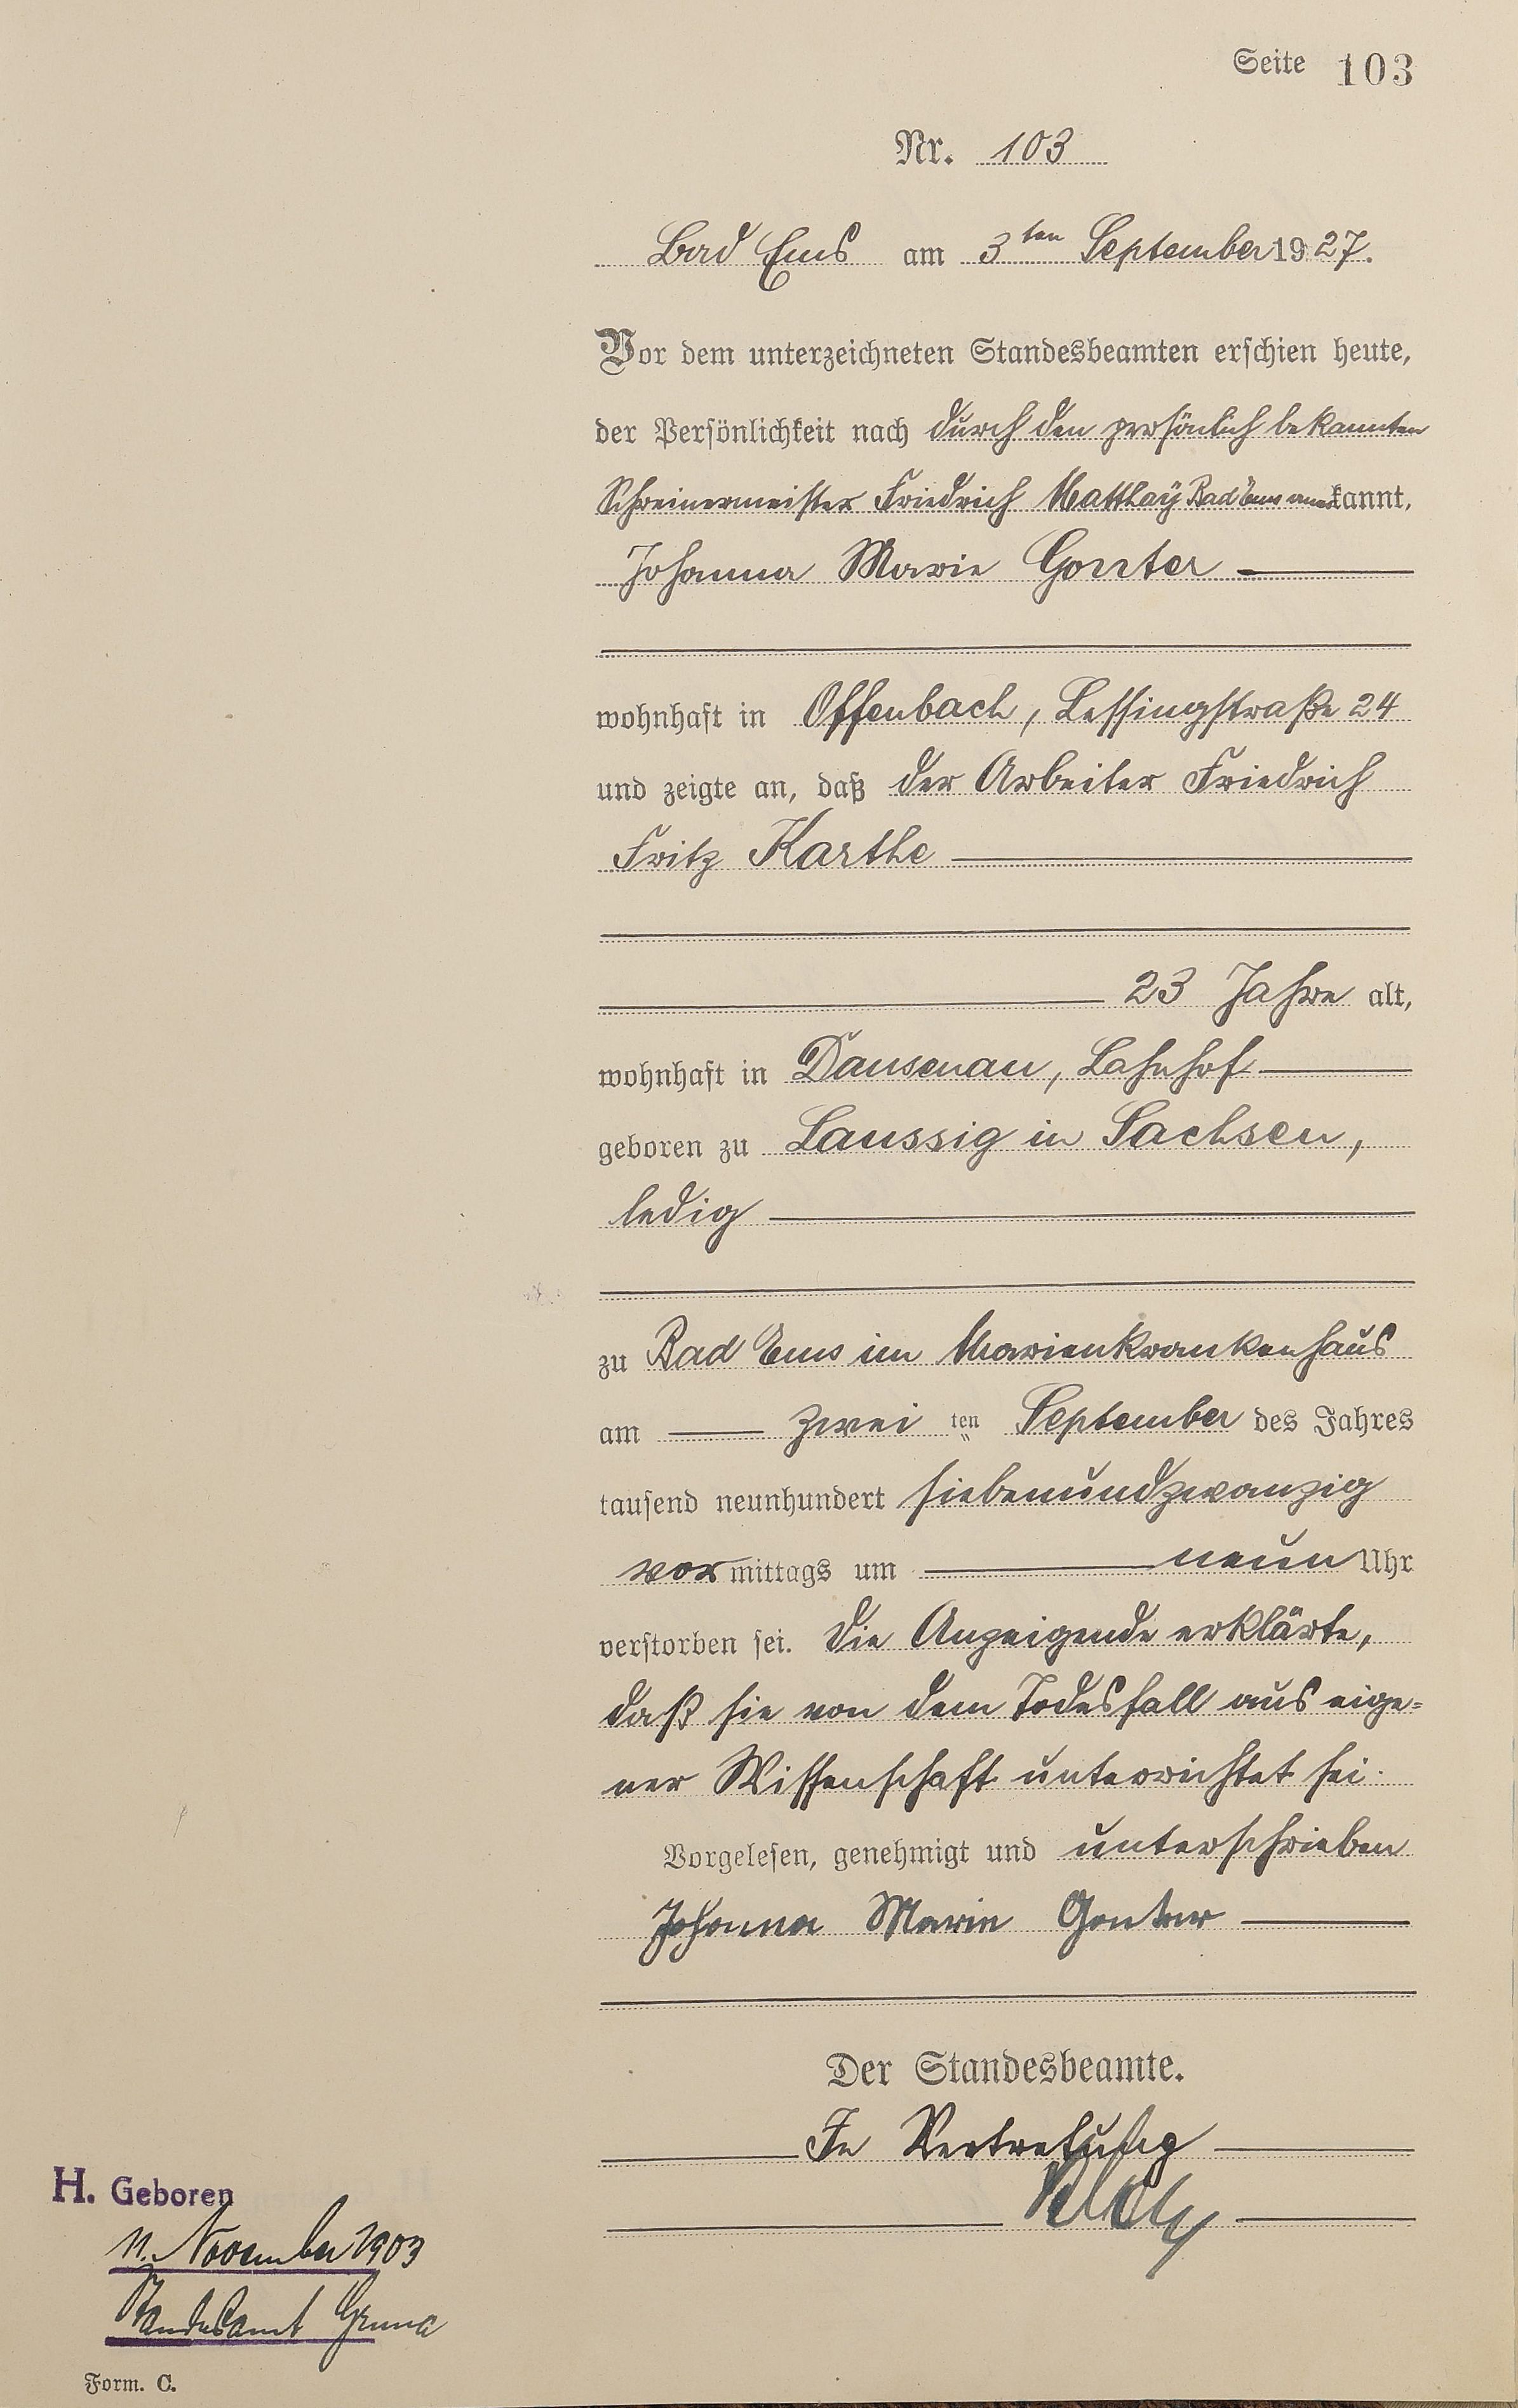 Seite 103
Nr. 103
Bad Ems am 3ten September 1927.
Vor dem unterzeichneten Standesbeamten erschien heute,
der Persönlichkeit nach durch den persönlich bekannten
Schreinermeister Friedrich Matthay Bad Ems anerkannt,
Johanna Marie Gonter
wohnhaft in Offenbach, Lessingstraße 24
und zeigte an, daß der Arbeiter Friedrich
Fritz Karthe
23 Jahre alt,
wohnhaft in Dausenau, Lahnhof
geboren zu Laussig in Sachsen,
ledig
zu Bad Ems im Marienkrankenhaus
am zwei ten September des Jahres
tausend neunhundert siebenundzwanzig
vormittags um neun Uhr
verstorben sei. Die Anzeigende erklärte,
daß sie von dem Todesfall aus eige-
ner Wissenschaft unterrichtet sei.
Vorgelesen, genehmigt und unterschrieben
Johanna Marie Gonter
Der Standesbeamte.
In Vertretung
H. Geboren
11. November 1903
Standesamt Gruna
Form. C.